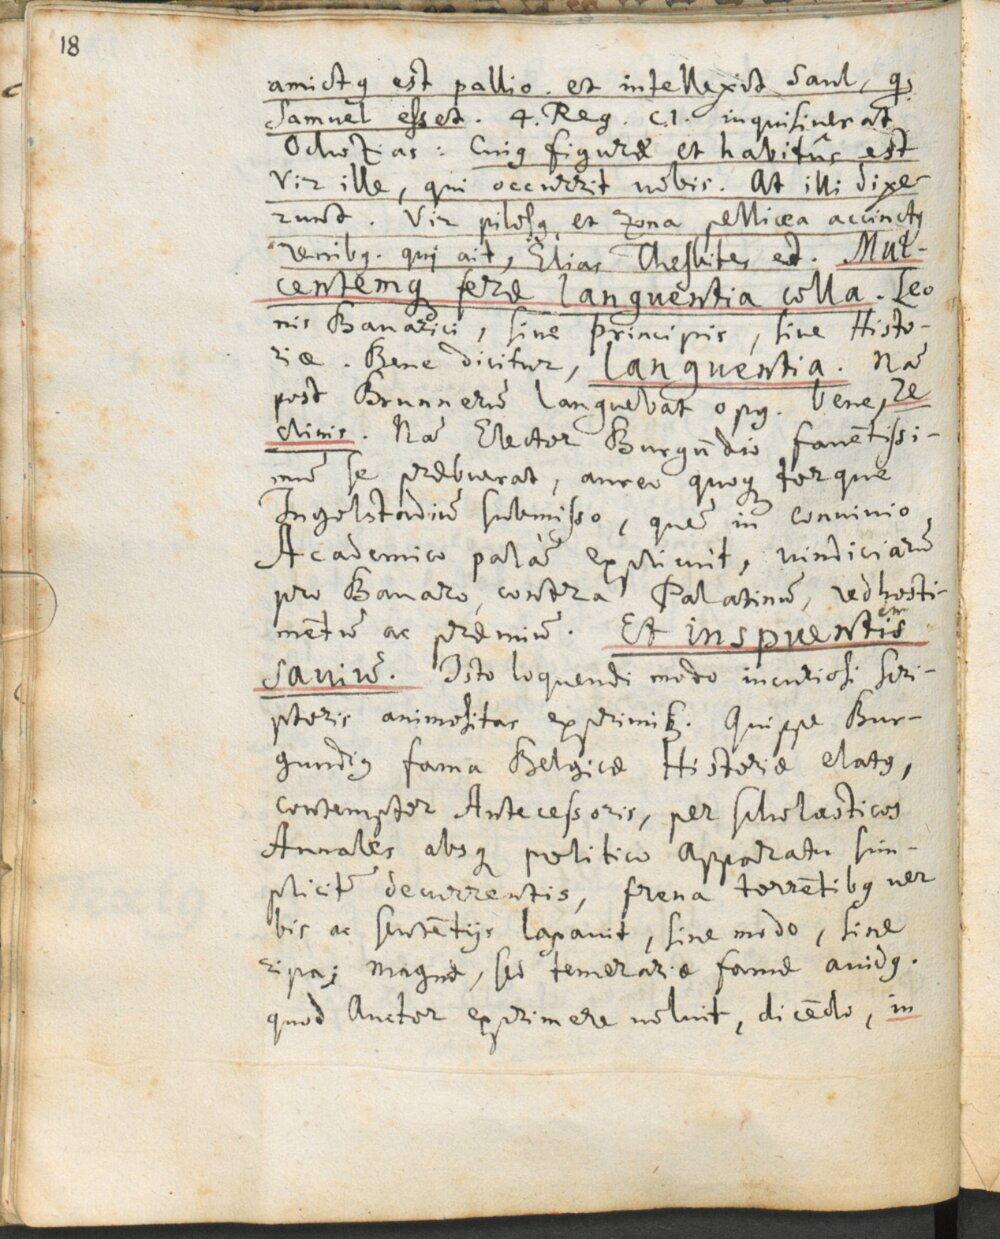 18
amictq est pallio. et intellexit Saul, q;
Samuel esset. 4. Reg. c.1. inquisiuerat
Ochozias: Cuiq figuræ et habitûs est
Vir ille, qui occurrit nobis. At illi dixe-
runt. Vir pilosq, et zona pellicea accinctq
renibq. qui ait, Elias Thesbites est. Mul-
centemq feræ languentia colla. Leo
nis Bauarici, siue Principis, siue Histo-
riæ. Bene dicitur, languentia. Nā
post Brunnerū languebat opq. bene, re
clinis. Nā Elector Burgūdio fauētissi-
mū se præbuerat, aureo quoq torque
Ingolstadiū submisso, quē in conuiuio
Academico palā explicuit, uindiciarū
pro Bauaro, contra Palatinū, redhosti-
mētū ac præmiū. Et inspuentis im
sauiū. Isto loquendi modo incuriosi scri-
ptoris animositas exprimit. Quippe Bur-
gundiq fama Belgicæ Historiæ elatq,
contemptor Antecessoris, per scholasticos
Annales absq politico apparatu sim-
plicitē decurrentis, frena torrētibq uer
bis ac sentētijs laxauit, sine modo, sine
ripa; magnæ, sed temerariæ famæ auidq.
quod Auctor exprimere uoluit, dicēdo, in